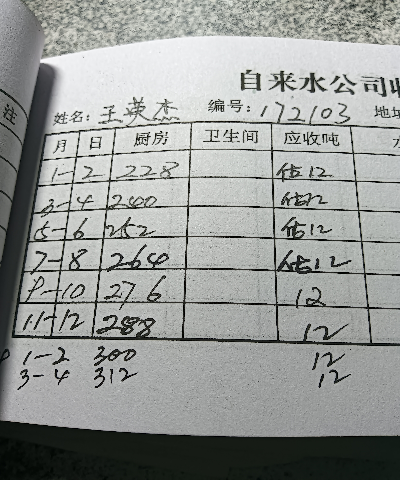 自来水公司收
注
姓名: 王英杰 编号: 172103 地址
月 日 厨房 卫生间 应收吨 水
1-2 228 估12
3-4 240 估12
5-6 252 估12
7-8 264 估12
9-10 276 12
11-12 288 12
1-2 300 12
3-4 312 12